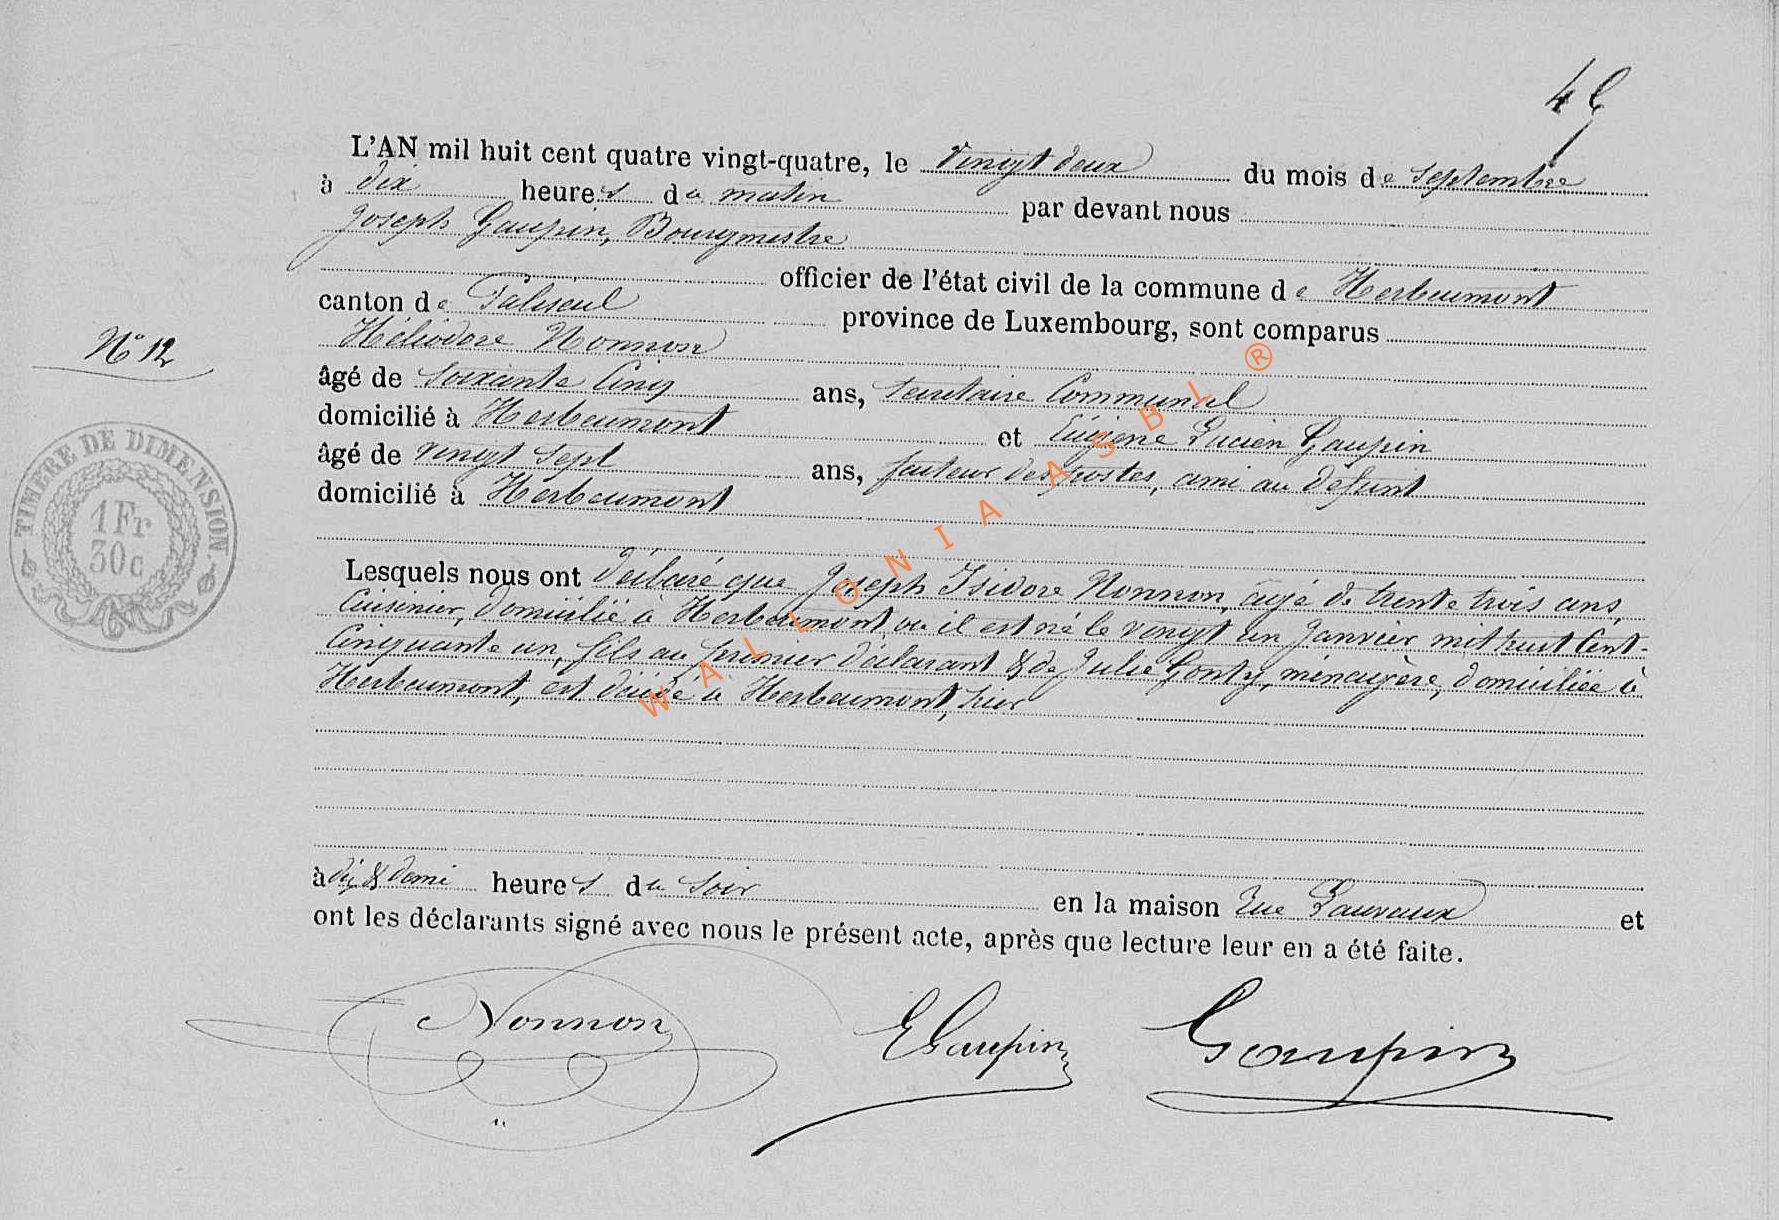 L'AN mil huit cent quatre vingt-quatre, le vingt deux du mois de septembre
à dix heures du matin par devant nous
Joseph Gaupin, Bourgmestre
officier de l'état civil de la commune de Herbeumont
canton de Paliseul province de Luxembourg, sont comparus
Héliodore Nonnon
N° 12
âgé de soixante cinq ans, secrétaire Communal
domicilié à Herbeumont et Eugène Lucien Gaupin
âgé de vingt sept ans, facteur des postes, ami au défunt
domicilié à Herbeumont
TIMBRE DE DIMENSION.
1 Fr
30c
Lesquels nous ont déclaré que Joseph Isidore Nonnon, âgé de trente trois ans,
Cuisinier, domicilié à Herbeumont, où il est né le vingt un Janvier mil huit Cent-
Cinquante un, fils au premier déclarant & de Julie Gonty, ménagère, domiciliée à
Herbeumont, est décédé à Herbeumont, hier
à dix & demi heures du soir en la maison rue Lauvaux et
ont les déclarants signé avec nous le présent acte, après que lecture leur en a été faite.
Nonnon EGaupin Gaupin
WALLONIA ASBL ®